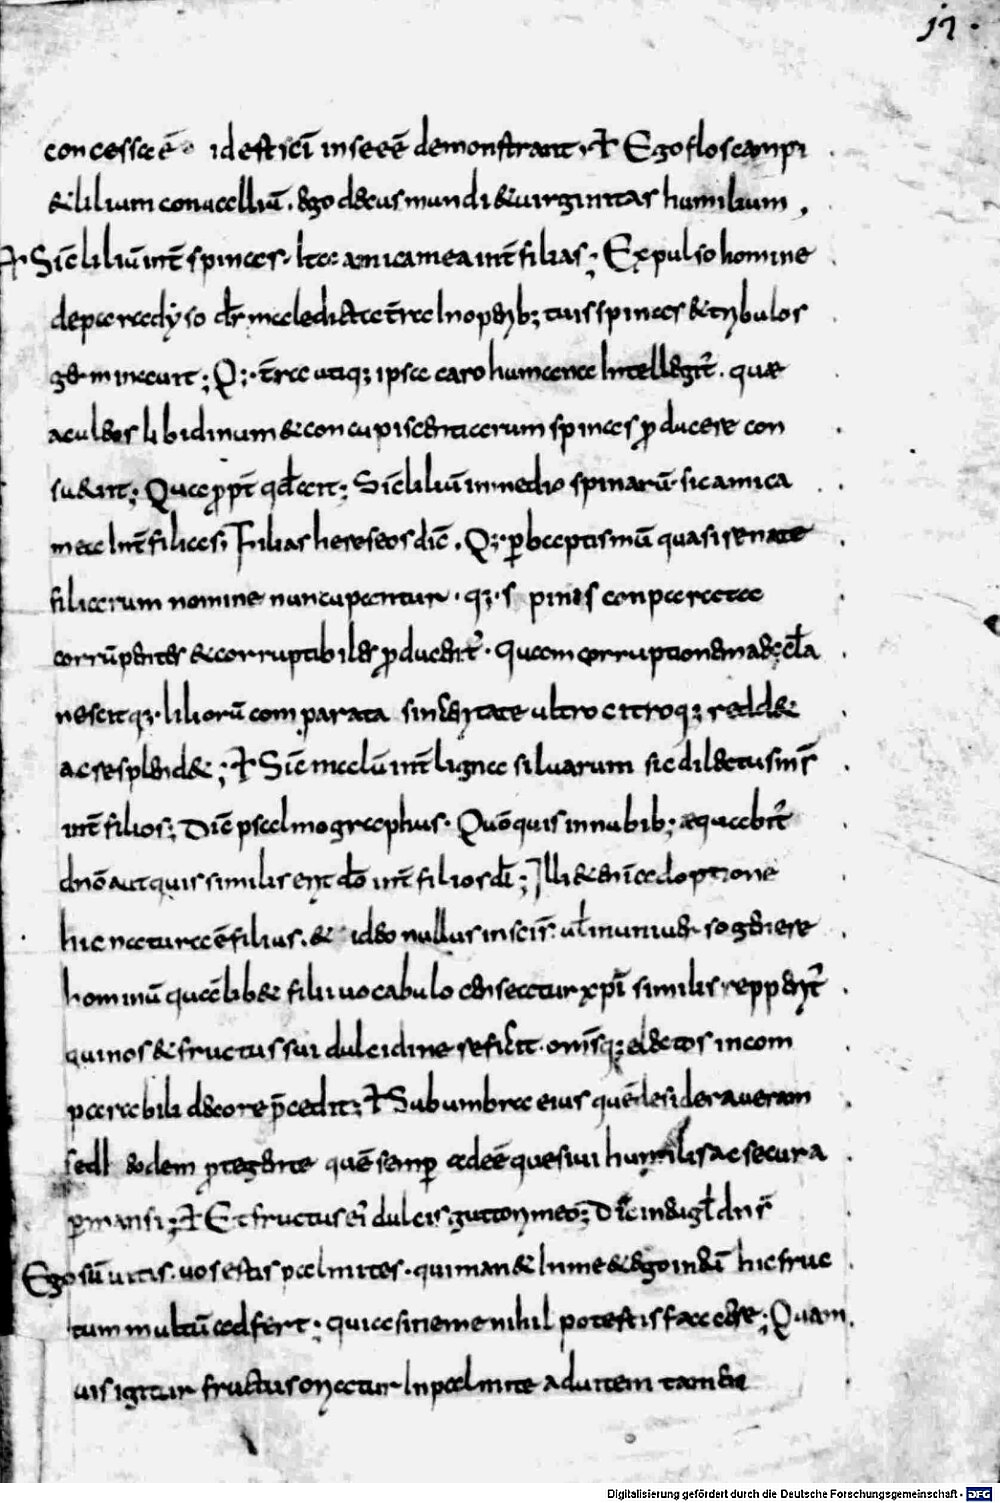 17.
concessa ē. id est sicī in se eē demonstrant. Ego flos campi
& lilium conuallium. ego decus mundi & uirginitas humilium,
Sic̄ liliū int̄ spinas. Ita amica mea int̄ filias; Expulso homine
de paradyso dr̄ maledicta t̄ra In operib; tuis spinas & tribulos
germinauit; Q; t̄ra utiq; ipsa caro humana Intellegit̄. quae
aculeos libidinum & concupiscentiarum spinas ꝓducere con
sueuit; Qua ꝓpt̄ qd̄ ait; Sic̄ liliū in medio spinarū sic amica
mea Int̄ filias; Filias hereseos dic̄. Q; ꝑ baptismū quasi renate
filiarum nomine nuncupantur. q; spinis conparatae
corrūpentes & corruptibiles ꝓducent̄. Quam corruptionem aecl̄a
nescit q; liliorū comparata sinceritate ultro citroq; redd&
ac resplend&; Sic̄ malū int̄ ligna siluarum sic dilectus ms̄
int̄ filios; Dic̄ psalmographus. Quō quis in nubib; aequabit̄
dn̄o aut quis similis erit dō int̄ filios dī; Illi & enī adoptione
hic natura ē filius. & ideo nullus in scīs. ul̄ in uniuerso genere
hominū qualib& filii uocabulo censeatur xp̄i similis repperit̄
qui nos & fructus sui dulcidine reficit. omīsq; electos incom
parabili decore p̄cedit; Sub umbra eius quē desideraueram
sedI eodem ꝓtegente quē semꝑ adeē quesiui humilis ac secura
ꝑmansi; Et fructus eī dulcis gutturi meo; Dic̄ in euāgl̄ dn̄s
Ego sū uitis. uos estis palmites. qui man& In me & ego in eū hic fruc
tum multū adfert; quia sine me nihil potestis facere; Quam
uis igitur fructus oriatur In palmite ad uitem tamen
Digitalisierung gefördert durch die Deutsche Forschungsgemeinschaft - DFG